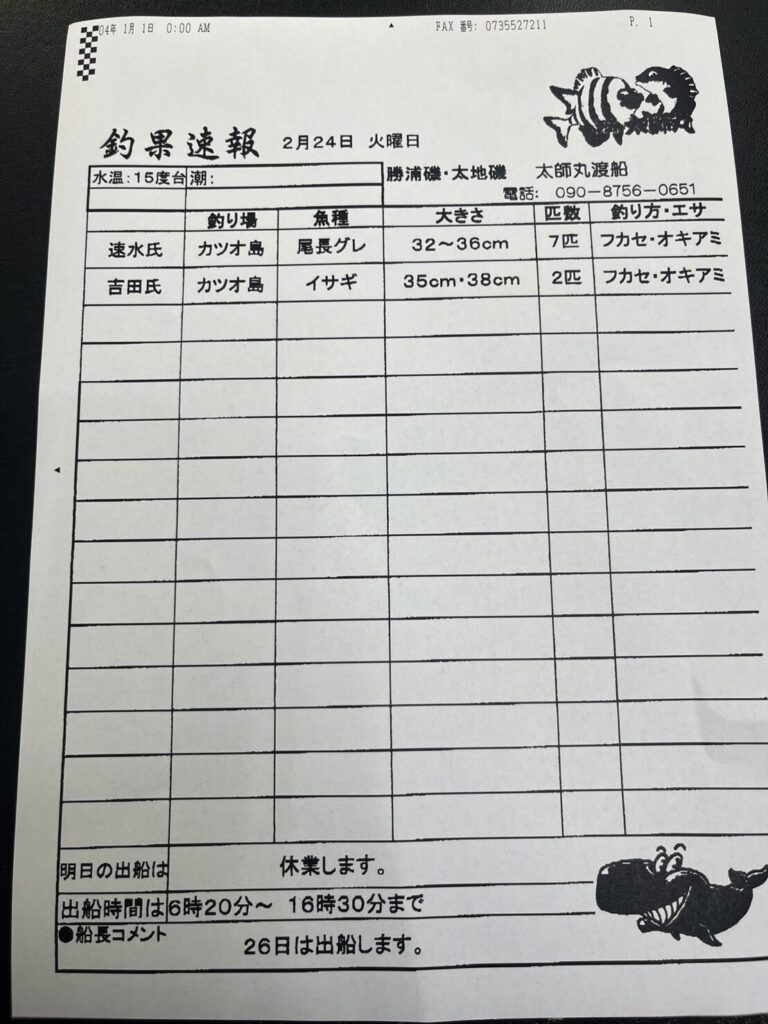 04年 1月 1日 0:00 AM FAX 番号: 0735527211 P. 1
釣果速報 2月24日 火曜日
水温:15度台 潮: 勝浦磯・太地磯 太師丸渡船
電話: 090-8756-0651
釣り場 魚種 大きさ 匹数 釣り方・エサ
速水氏 カツオ島 尾長グレ 32～36cm 7匹 フカセ・オキアミ
吉田氏 カツオ島 イサギ 35cm・38cm 2匹 フカセ・オキアミ
明日の出船は 休業します。
出船時間は 6時20分～ 16時30分まで
●船長コメント 26日は出船します。